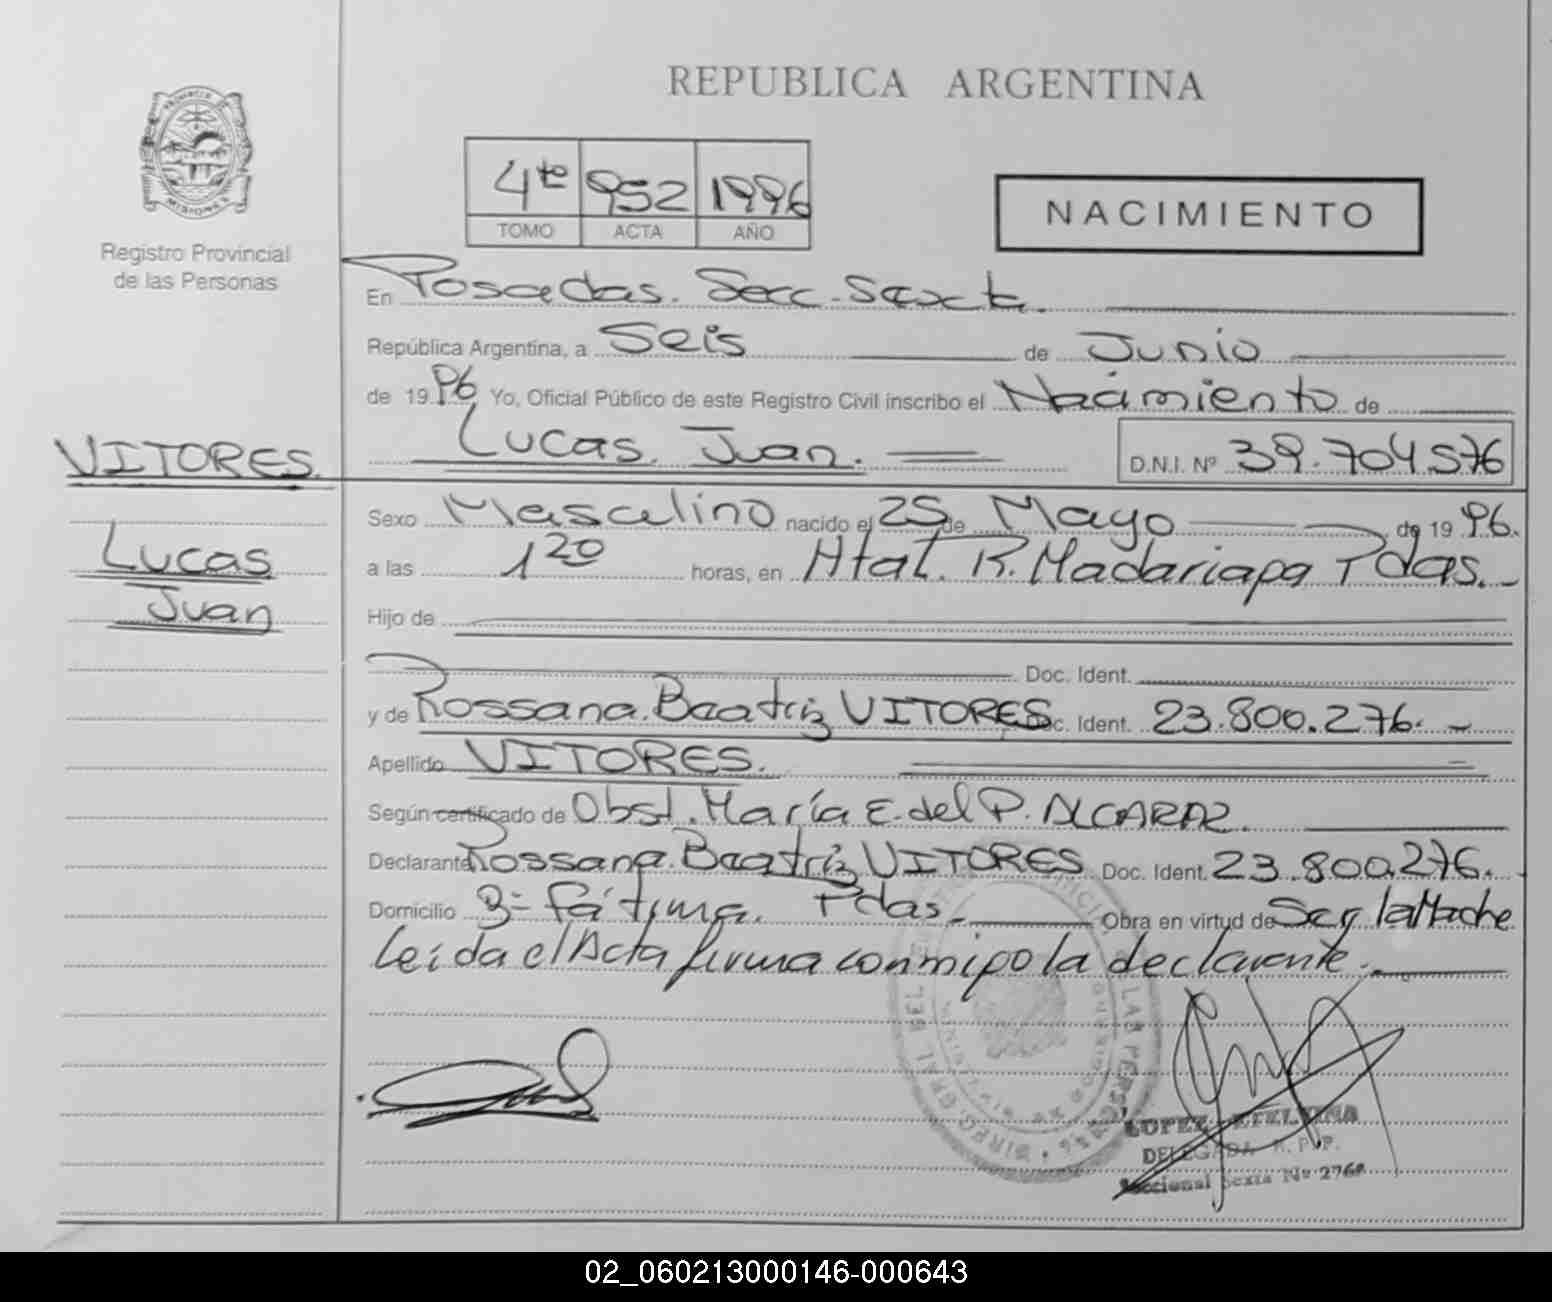 REPUBLICA ARGENTINA
PROVINCIA DE
MISIONES
Registro Provincial
de las Personas
4to 952 1996
TOMO ACTA AÑO
NACIMIENTO
En Posadas. Secc. Sexta.
República Argentina, a Seis de Junio
de 1996 Yo, Oficial Público de este Registro Civil inscribo el Nacimiento de
Lucas. Juan. D.N.I. Nº 39.704.576
VITORES.
Lucas
Juan
Sexo Masculino nacido el 25 de Mayo de 1996.
a las 1 20 horas, en Htal. R. Madariaga Pdas.
Hijo de
Doc. Ident.
y de Rossana. Beatriz VITORES Doc. Ident. 23.800.276.
Apellido VITORES.
Según certificado de Obst. María E. del P. ALCARAZ.
Declarante Rossana. Beatriz VITORES Doc. Ident. 23.800.276.
Domicilio Bº Fátima. Pdas. Obra en virtud de Ser la Madre
Leída el Acta firma conmigo la declarante.
LOPEZ ETELVINA
DELEGADA R. P. P.
Seccional Sexta Nº 276ª
02_060213000146-000643